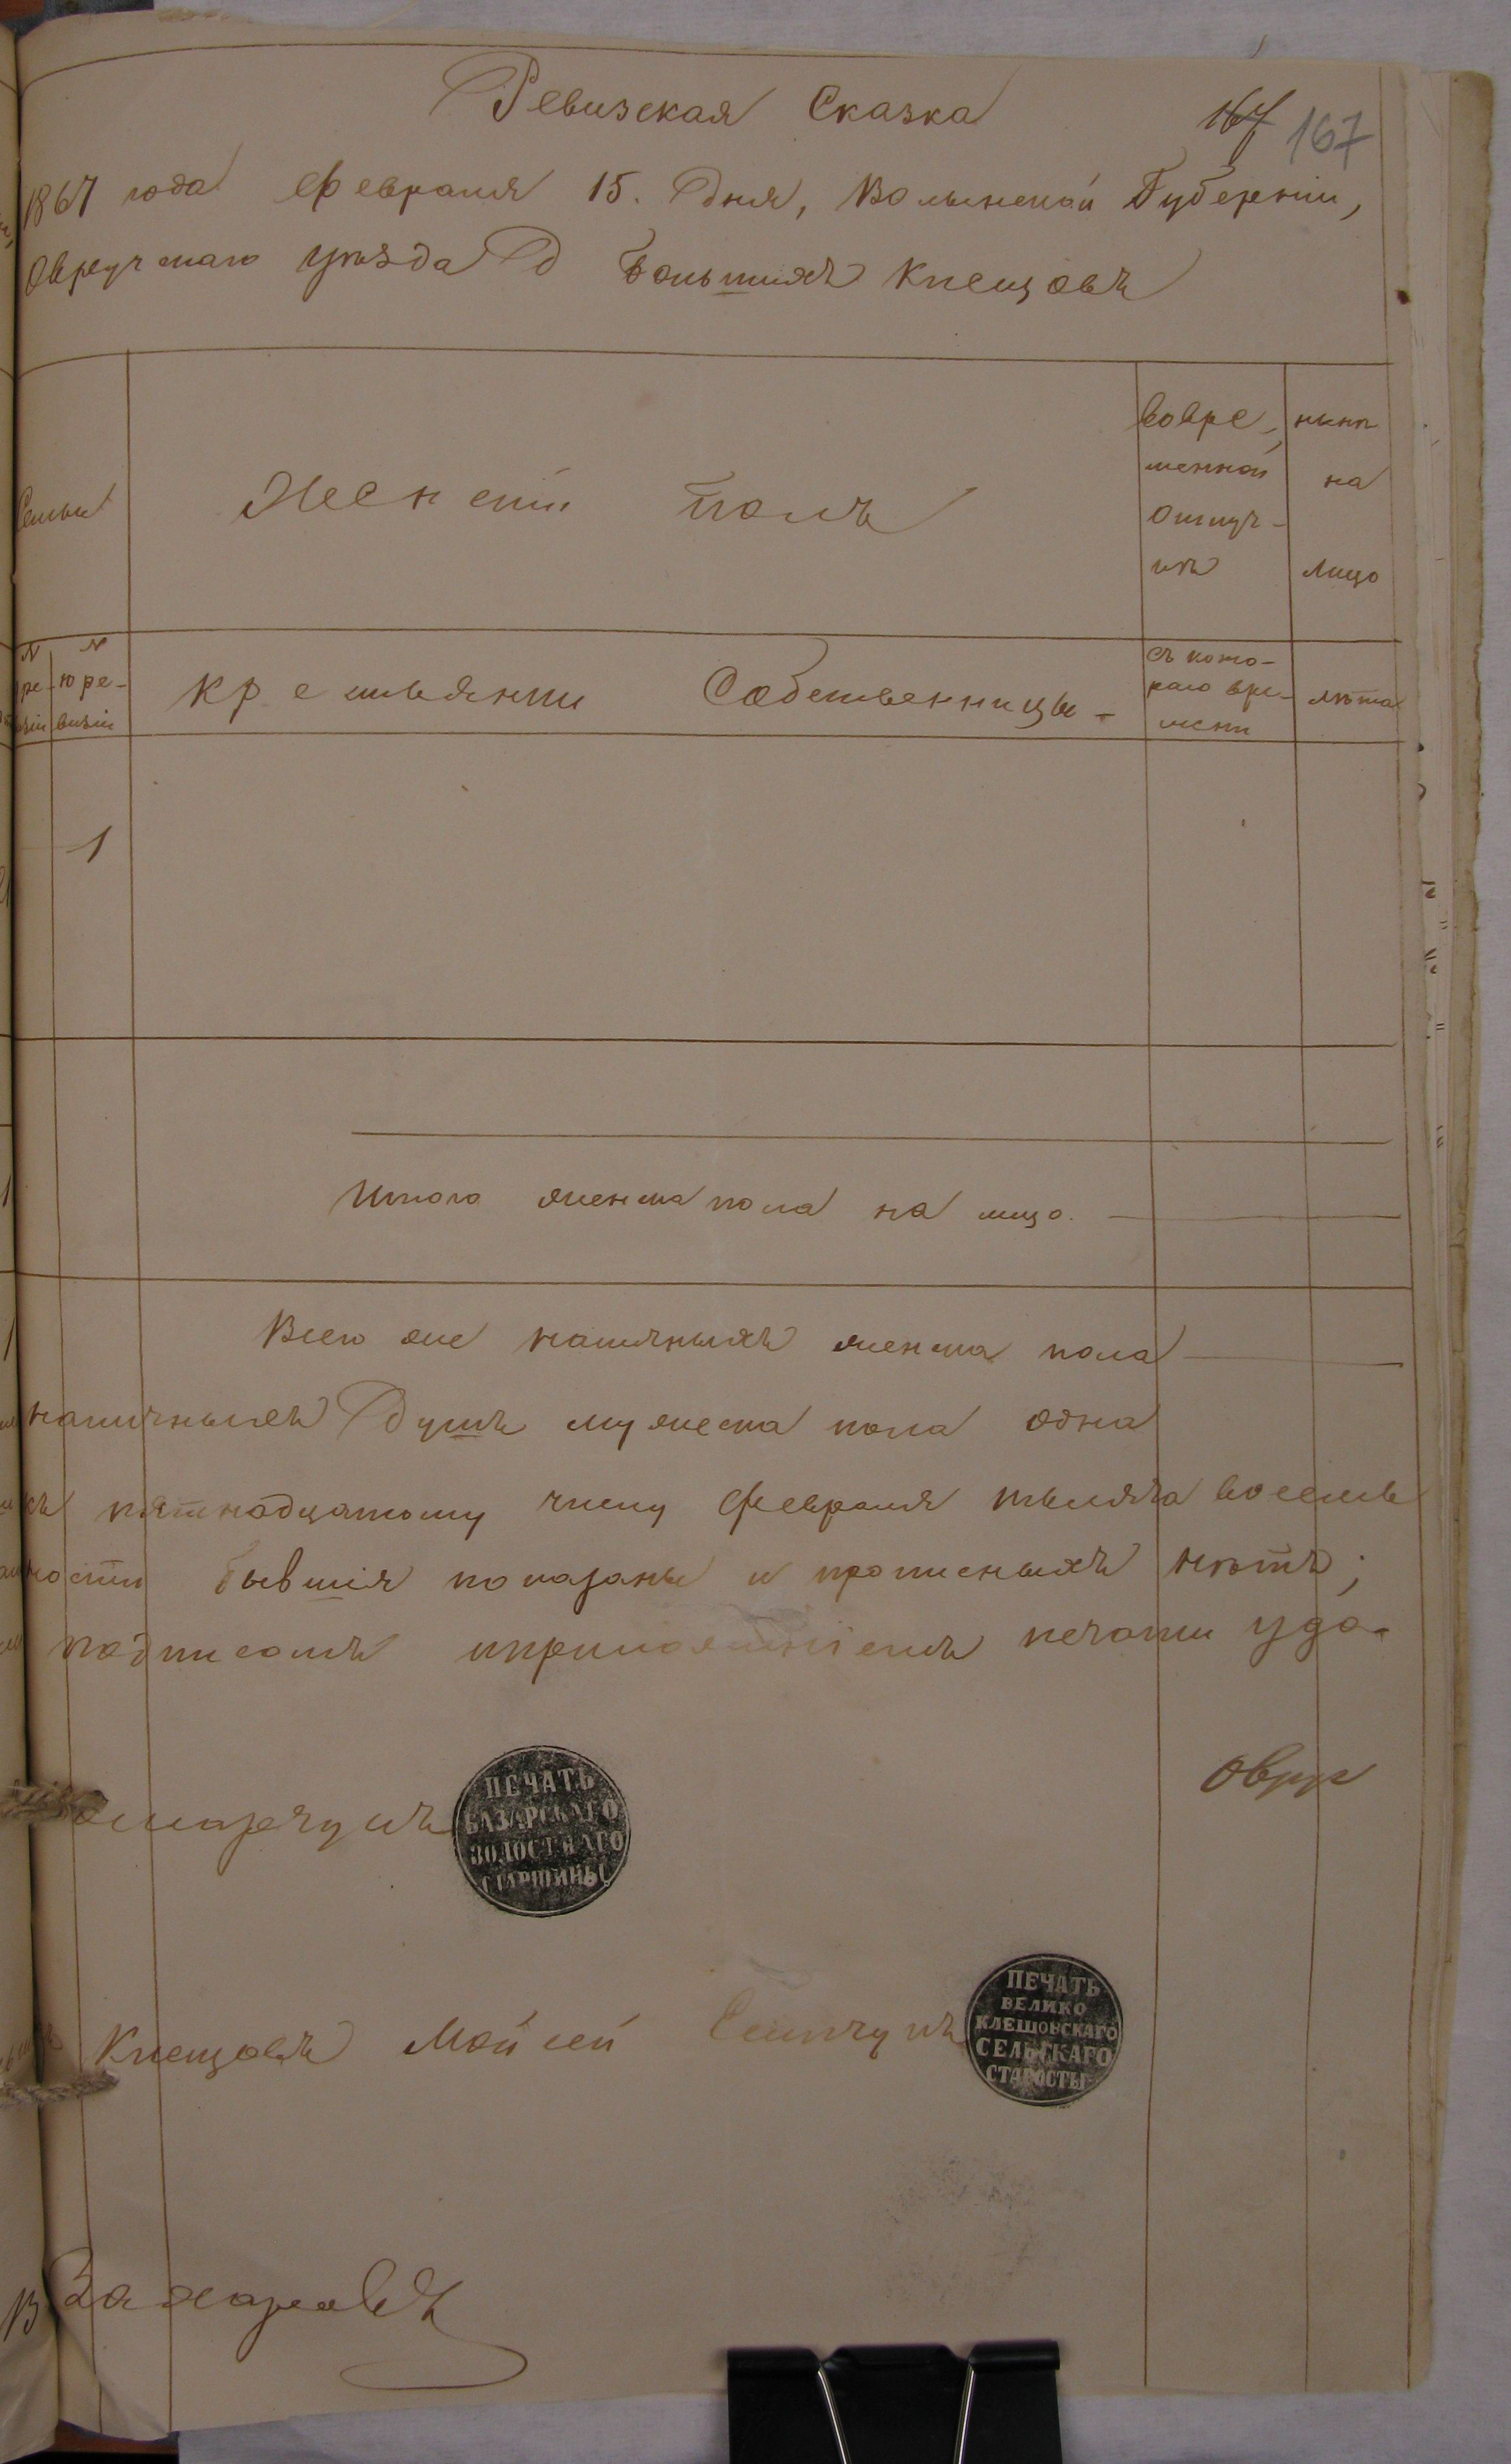 Ревизская Сказка
167 167
1867 года февраля 15. Дня, Волынской Губерніи,
Овручскаго уѣзда Д Большихъ Клещовъ
Семьи
Женскій полъ
вовре-
менной
отлуч-
кѣ
нынѣ
на
лицо
№ ре-
визіи
№
10 ре-
визіи
крестьяне Собственницы -
съ кото-
раго вре-
мени
лѣта
1
Итого женска пола на лицо.
Всего же наличныхъ женска пола
наличныхъ Душъ мужеска пола одна
къ пятнадцатому числу февраля тысяча восемь
ности бывшія показаны и прописныхъ нѣтъ;
подписомъ иприложеніемъ печати удо-
Овруч
марчукъ
ПЕЧАТЬ
БАЗАРСКАГО
ВОЛОСТНАГО
СТАРШИНЫ
Клещовъ Мойсей
ПЕЧАТЬ
ВЕЛИКО
КЛЕЩОВСКАГО
СЕЛЬСКАГО
СТАРОСТЫ
Захаровъ